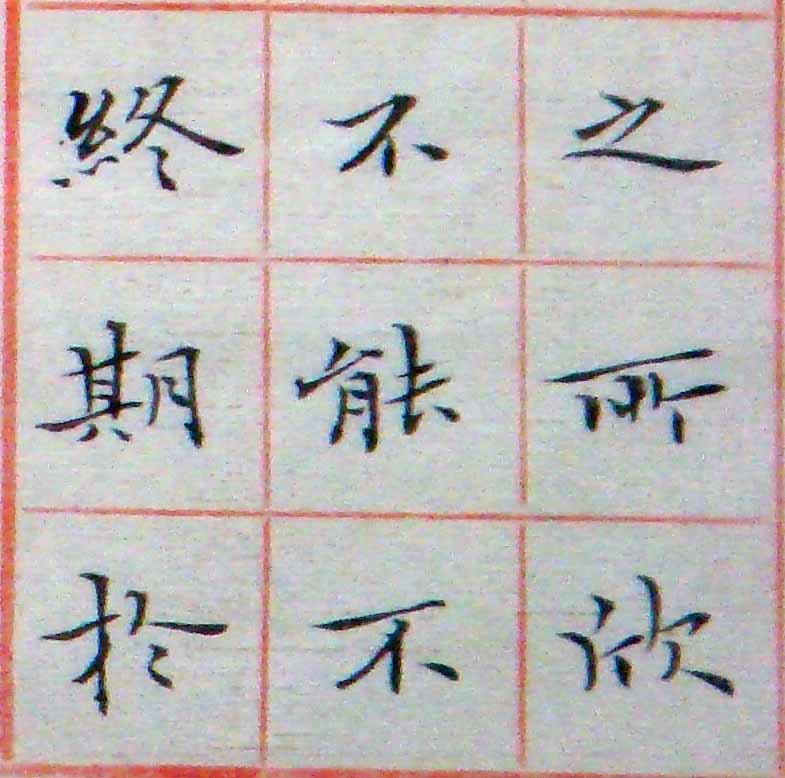 之所欣
不能不
終期於